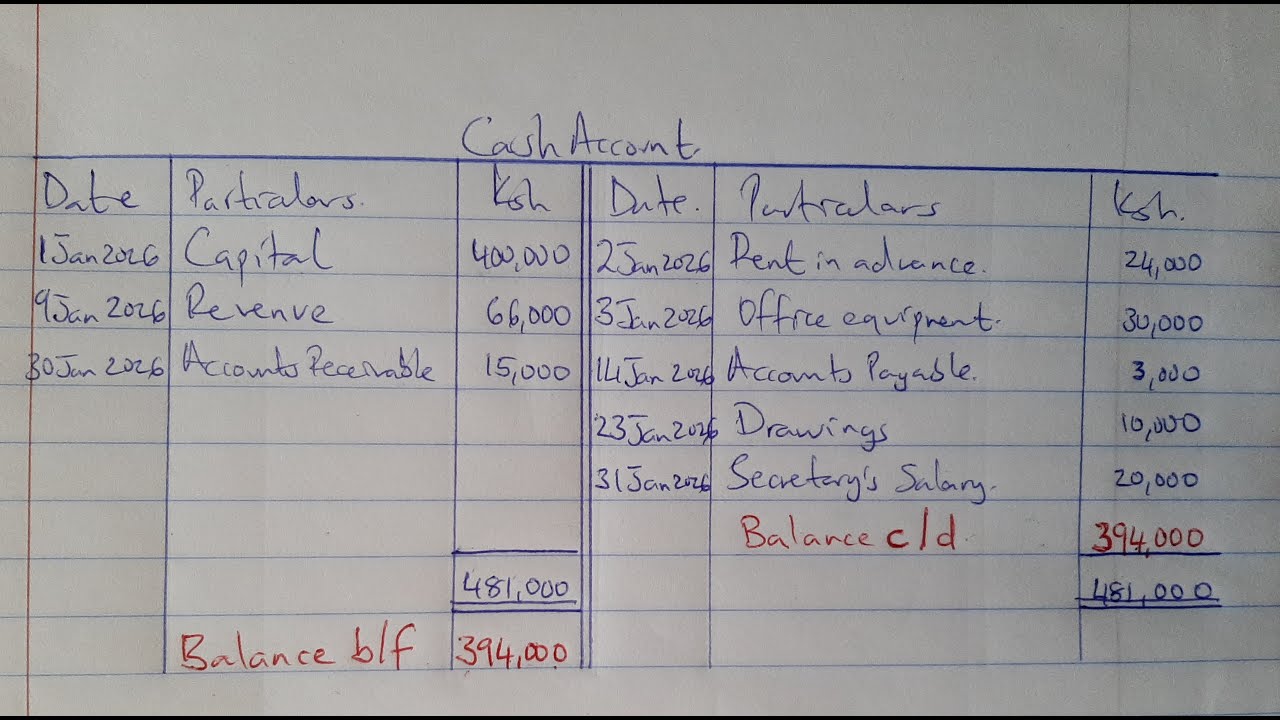 Cash Account
Date Particulars. Ksh Date. Particulars Ksh.
1 Jan 2026 Capital 400,000 2 Jan 2026 Rent in advance. 24,000
9 Jan 2026 Revenue 66,000 3 Jan 2026 Office equipment. 30,000
30 Jan 2026 Accounts Receivable 15,000 14 Jan 2026 Accounts Payable. 3,000
23 Jan 2026 Drawings 10,000
31 Jan 2026 Secretary's Salary. 20,000
Balance c/d 394,000
481,000 481,000
Balance b/f 394,000